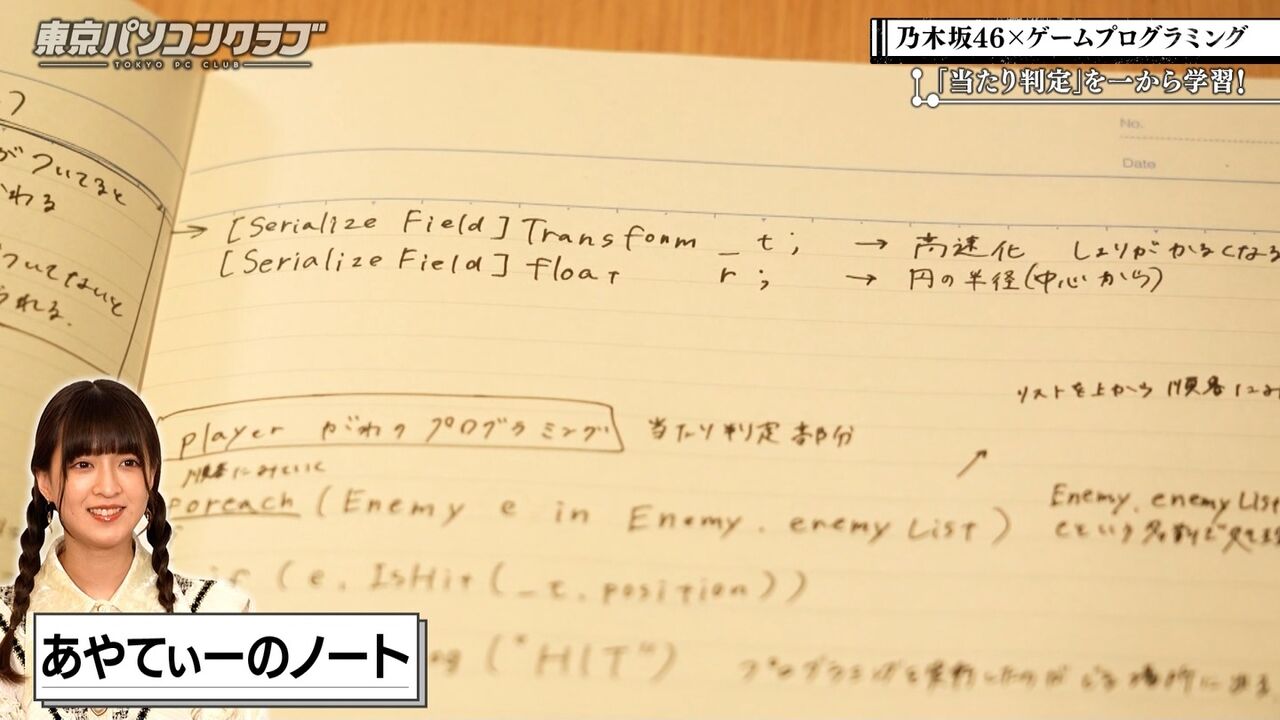 東京パソコンクラブ
TOKYO PC CLUB
乃木坂46×ゲームプログラミング
「当たり判定」を一から学習!
No.
Date
がついてると
わる
ついてないと
られる.
→ [Serialize Field] Transform _t; → 高速化 しょりがかるくなる
[Serialize Field] float r; → 円の半径(中心から)
リストを上から順番にみ
player がわのプログラミング 当たり判定部分
順番にみていく
foreach (Enemy e in Enemy.enemyList)
Enemy.enemyList
eという名前で
if (e.IsHit(_t.position))
og ("HIT") プログラミングを実行したのが
あやてぃーのノート